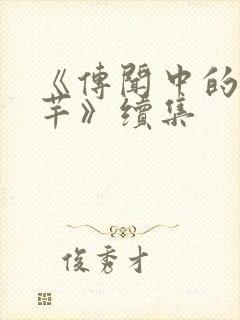 《傳聞中的
芊》續集
俊秀才